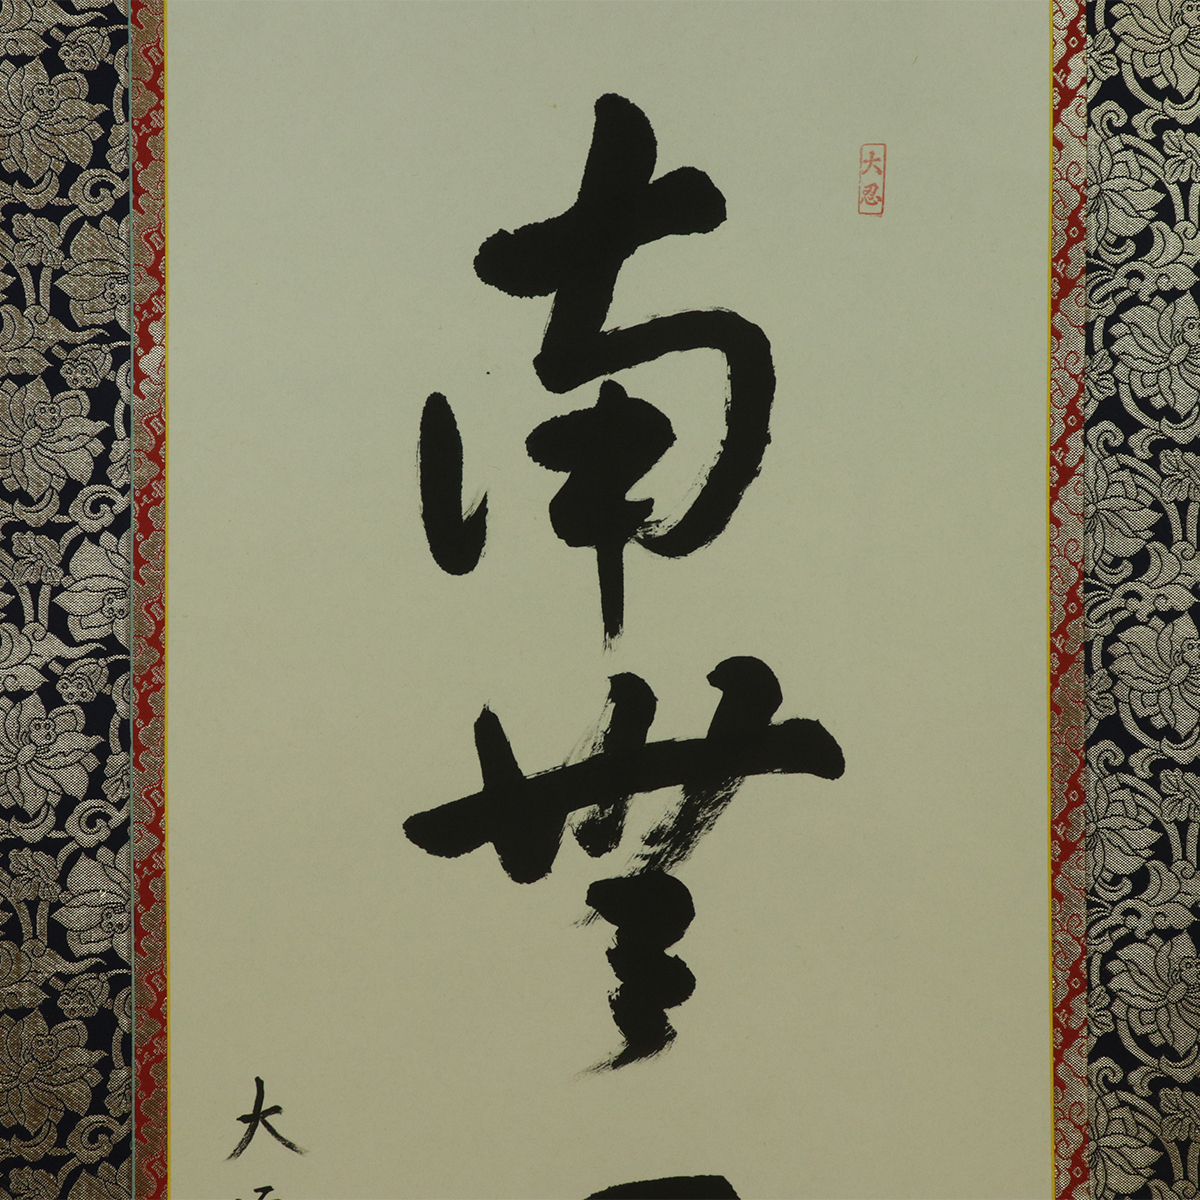 大忍
南無
大